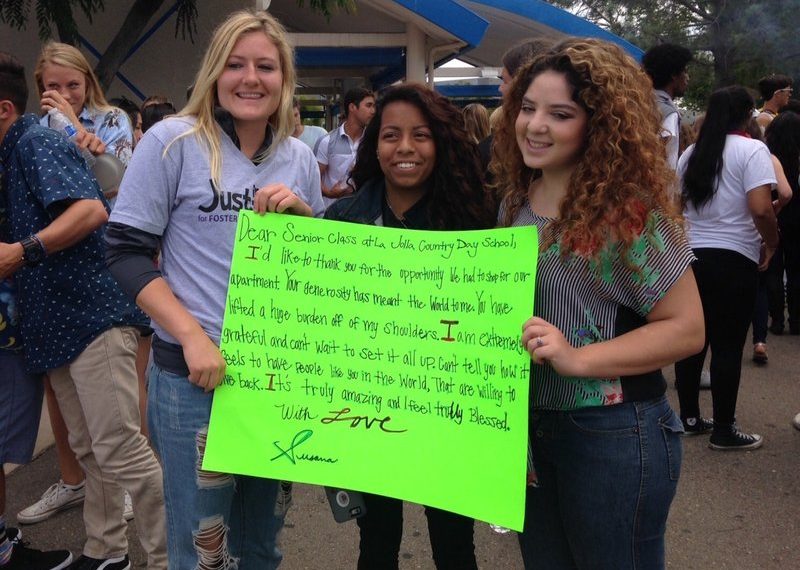 Just
for FOSTER
Dear Senior Class at La Jolla Country Day School,
I'd like to thank you for the opportunity We had to shop for our
apartment. Your generosity has meant the World to me. You have
lifted a huge burden off of my shoulders. I am extremely
grateful and can't wait to set it all up. Can't tell you how it
feels to have people like you in the World, that are willing to
give back. It's truly amazing and I feel truly Blessed.
With Love
Susana